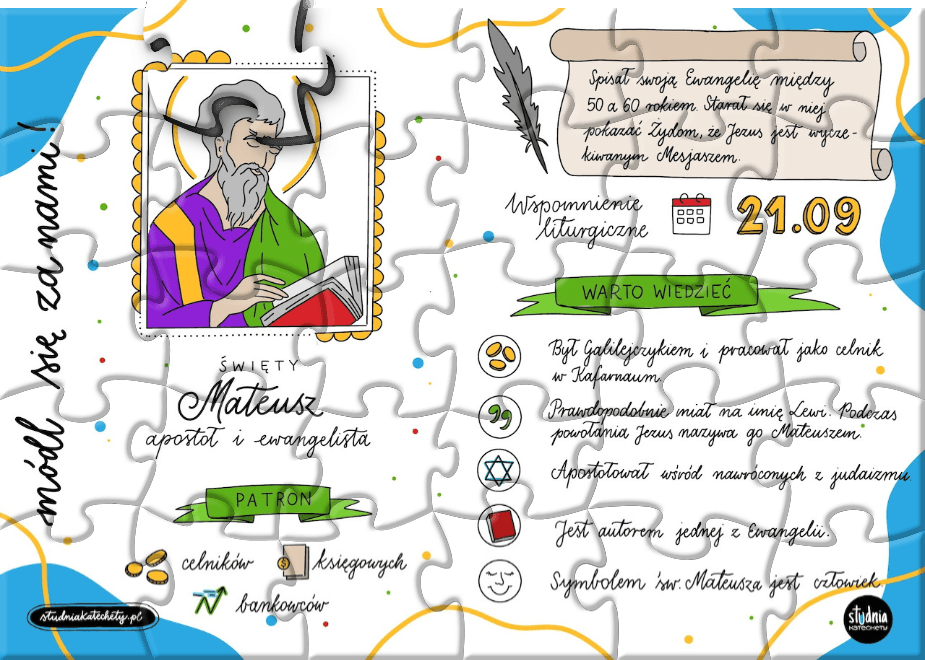 módl się za nami!
ŚWIĘTY
Mateusz
apostoł i ewangelista
PATRON
celników
księgowych
bankowców
studniakatechety.pl
Spisał swoją Ewangelię między
50 a 60 rokiem. Starał się w niej
pokazać Żydom, że Jezus jest wycze-
kiwanym Mesjaszem.
Wspomnienie
liturgiczne
21.09
WARTO WIEDZIEĆ
Był Galilejczykiem i pracował jako celnik
w Kafarnaum.
Prawdopodobnie miał na imię Lewi. Podczas
powołania Jezus nazywa go Mateuszem.
Apostołował wśród nawróconych z judaizmu.
Jest autorem jednej z Ewangelii.
Symbolem św. Mateusza jest człowiek.
studnia
KATECHETY